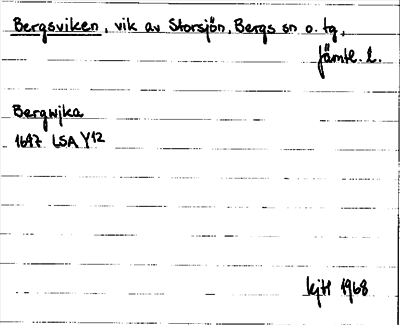 Bergsviken, vik av Storsjön, Bergs sn o. tg,
Jämtl. l.
Bergwjka
1647 LSA Y12
kjtl 1968